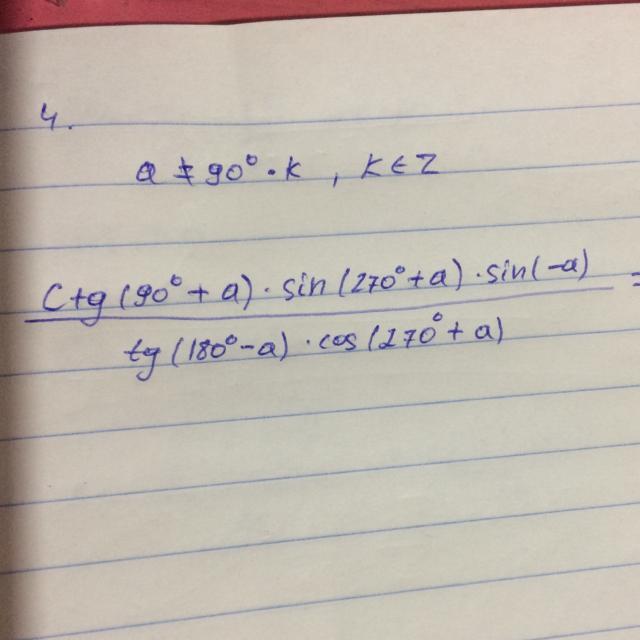 4.
a ≠ 90° · k , k ∈ Z
Ctg (90° + a) · sin (270° + a) · sin (-a) =
tg (180° - a) · cos (270° + a)